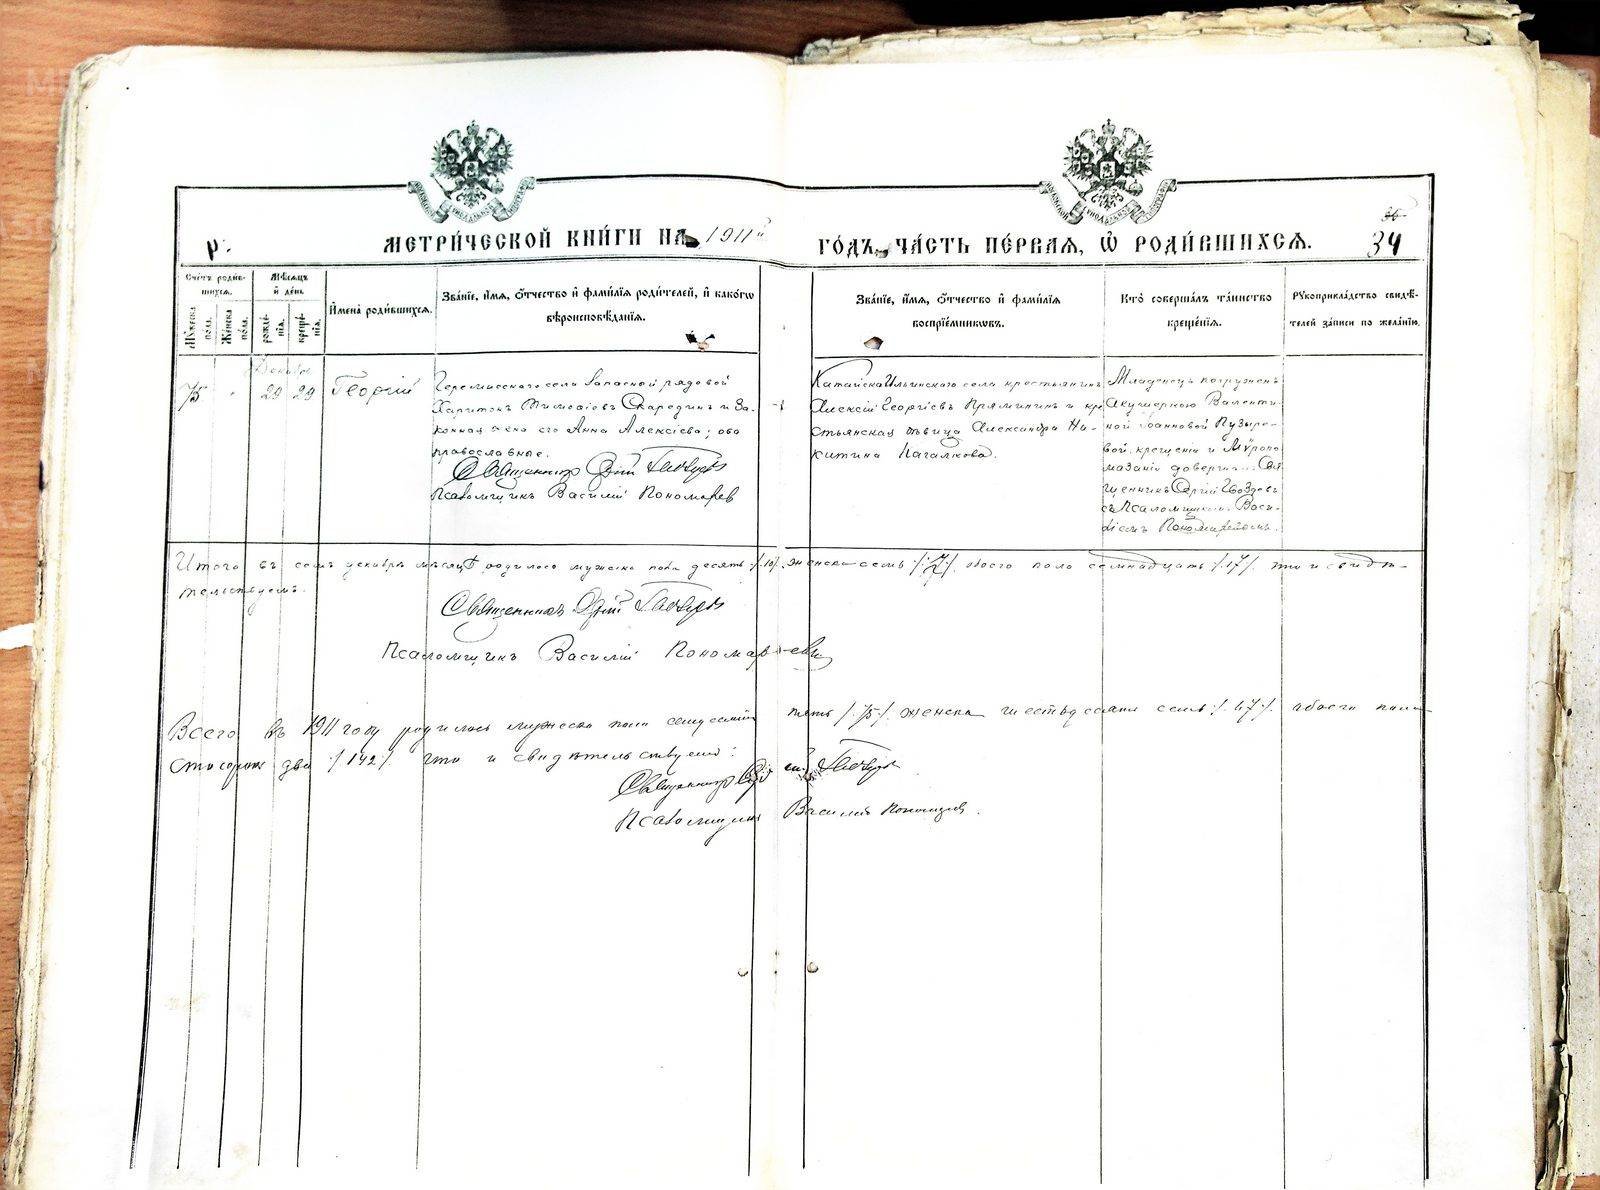 МЕТРИ́ЧЕСКОЙ КНИ́ГИ НА 1911й ГО́ДЪ, ЧА́СТЬ ПЕ́РВАЯ, Ѡ҆ РОДИ́ВШИХСЯ.
35
34
Сче́тъ роди́вшихся.
Мѹ́жеска по́ла.
Же́нска по́ла.
Мѣ́сяцъ и҆ де́нь
рожде́нїя.
креще́нїя.
И҆мена̀ роди́вшихся.
Зва́нїе, и҆́мя, ѻ҆́тчество и҆ фами́лїя роди́телей, и҆ како́гѡ
вѣроисповѣ́данїя.
Зва́нїе, и҆́мя, ѻ҆́тчество и҆ фами́лїя
воспрїе́мникѡвъ.
Кто̀ соверша́лъ та́инство
креще́нїя.
Рукоприкла́дство свидѣ́-
телей за́писи по жела́нїю.
Декабрь
75 " 29 29 Георгій
села запасной рядовой
Харитонъ Тимоѳіевъ Скарединъ и за-
конная жена его Анна Алексіева; оба
православные.
Священникъ
Псаломщикъ Василій Пономарев
Ильинскаго села крестьянинъ
Алексій Георгіевъ Прямининъ и кре
стьянская дѣвица Александра Ни-
китина
Младенецъ погруженъ
акушеркою Валенти-
ной Іоанновой Пузыре-
вой, крещеніе и Мѵропо
мазаніе довершилъ Свя-
щенникъ Сергій Гвоздевъ
съ Псаломщикомъ Васи-
ліемъ Пономаревымъ.
Итого въ семъ декабрѣ мѣсяцѣ родилось мужеска пола десять /.10/. женска семь /.7./. обоего пола семнадцать /.17/. что и свидѣ-
тельствуемъ.
Священникъ
Псаломщикъ Василій Пономаревъ
Всего въ 1911 году родилось мужеска пола семьдесятъ пять /.75/. женска шестьдесятъ семь /.67/. обоего пола
сто сорокъ два /.142/. что и свидѣтельствуемъ:
Священникъ
Псаломщикъ Василій Пономаревъ.